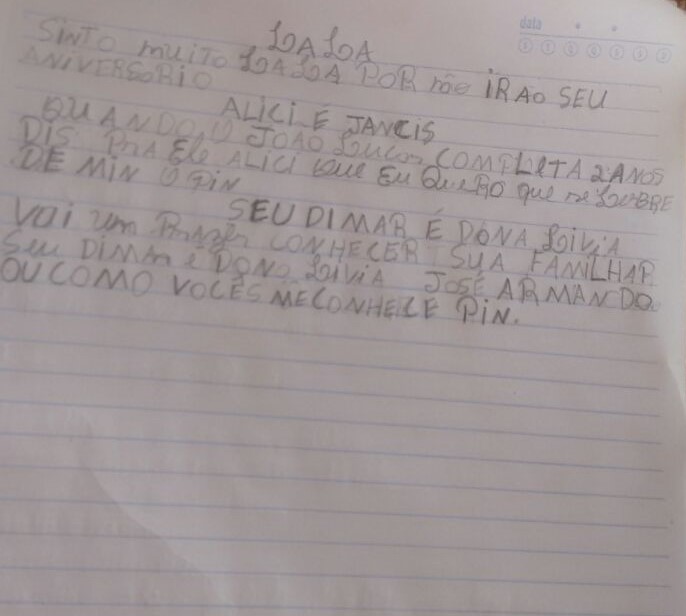 data
LALA
SINTO muito LALA POR não iR AO SEU
ANIVERSORIO
ALICI E JANCIS
QUANDO O JOAO Lucas COMPLETA 2 ANOS
DIS PRA ELE ALICI que EU QuERO que se LOUBRE
DE MIN O PiN
SEU DIMAR É DONA LiViA
Voi um Prazer CONHECER SUA FAMILHAR
Seu DIMAR e DONO LiViA JOSÉ ARMANDO
OU COMO VOCÊS ME CONHECE PiN.